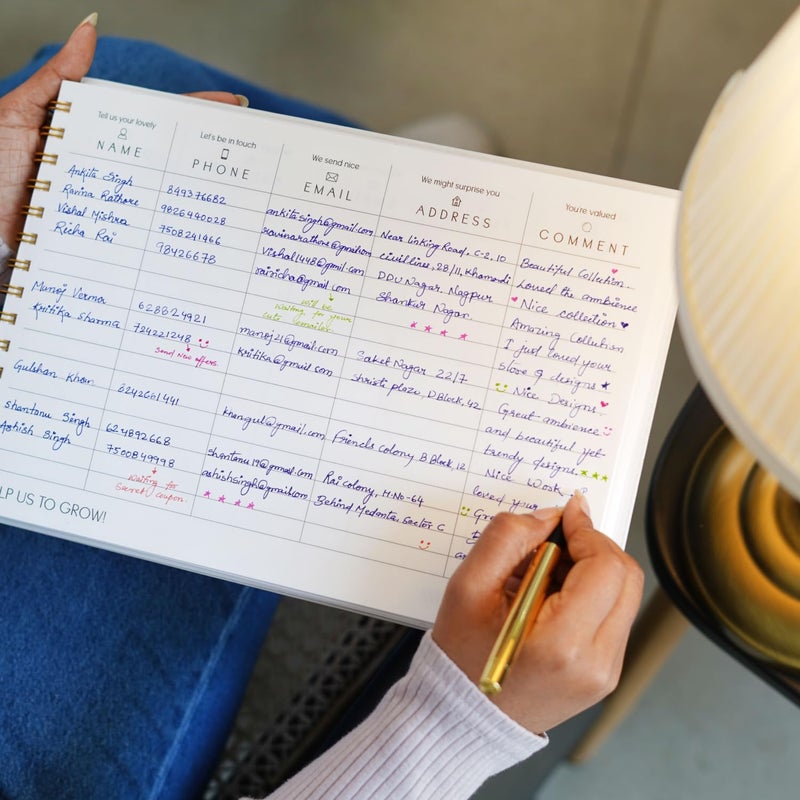 Tell us your lovely
NAME
Let's be in touch
PHONE
We send nice
EMAIL
We might surprise you
ADDRESS
You're valued
COMMENT
Ankita Singh
Ravina Rathore
Vishal Mishra
Richa Rai
Manoj Verma
Kritika Sharma
Gulshan Khan
Shantanu Singh
Ashish Singh
849376682
9826440028
7508241966
98426678
628824921
724221248
Send New offers.
8242661441
624892668
7500849998
waiting for
Secret coupon.
ankitasingh@gmail.com
ravinarathore@gmail.com
vishal1448@gmil.com
rairicha@gmail.com
will be
waiting for your
cute emailer
manoj21@gmail.com
kritika@gmail.com
khangul@gmail.com
shantanu19@gmail.com
ashishsingh@gmail.com
Near Linking Road, C-2, 10
civil lines, 28/11, Khamadi
DDU Nagar, Nagpur
Shankar Nagar
Saket Nagar 22/7
Shristi plaza, D Block, 42
Friends Colony B Block, 12
Rai colony, H-No-64
Behind Medanta, Sector C
Beautiful Collection.
Loved the ambience
Nice collection
Amazing Collection
I just loved your
store & designs
Nice Designs.
Great ambience
and beautiful yet
trendy designs.
Nice Work
loved your
HELP US TO GROW!